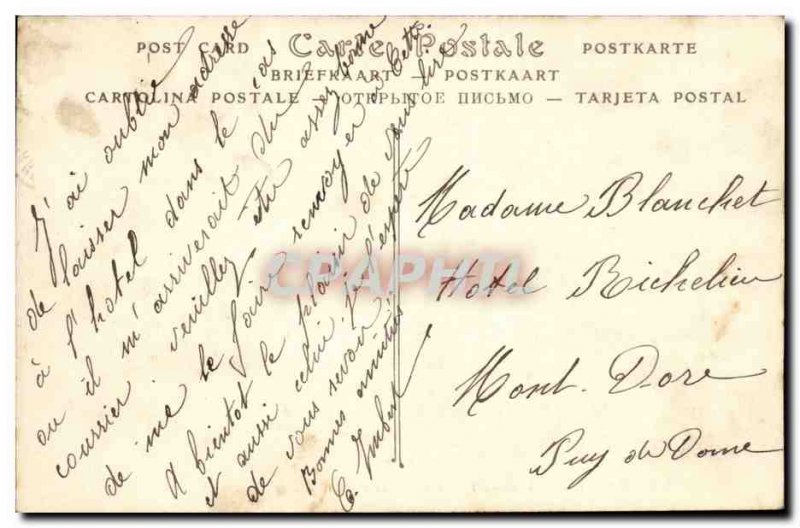 POST CARD Carte Postale POSTKARTE
BRIEFKAART — POSTKAART
CARTOLINA POSTALE — ОТКРЫТОЕ ПИСЬМО — TARJETA POSTAL
J'ai oublié
de laisser mon adresse
à l'hotel dans le cas
ou il m'arriverait du
courrier veuillez
de me le faire renvoyer à Cette
A bientot le plaisir de vous lire
et aussi celui, je l'espère
de vous revoir
Bonnes amitiés
C. Imbert
Madame Blanchet
Hotel Richelieu
Mont. Dore
Puy de Dome
CPAPHIL